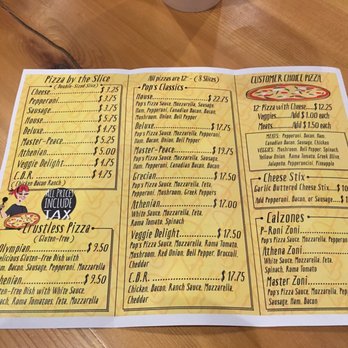 Pizza by the Slice
(Double-Sized Slice)
Cheese $ 3.25
Pepperoni $ 3.75
Sausage $ 3.75
House $ 5.00
Deluxe $ 4.75
Master-Peace $ 5.25
Athenian $ 5.00
Veggie Delight $ 4.75
C.B.R. $ 4.75
Bacon Ranch)
ALL PRICES
INCLUDE
TAX
Crustless Pizza
(Gluten-Free)
Olympian $ 9.50
Delicious Gluten-Free Dish with
Ham, Bacon, Sausage, Pepperoni, Mozzarella
Athenian $ 9.50
Gluten-Free Dish with White Sauce,
Spinach, Roma Tomatoes, Feta, Mozzarella
All pizzas are 12" - (8 Slices)
Pop's Classics
House $ 22.75
Pop's Pizza Sauce, Mozzarella, Sausage,
Ham, Pepperoni, Canadian Bacon, Bacon,
Mushroom, Onion, Bell Pepper
Deluxe $ 17.75
Pop's Pizza Sauce, Mozzarella, Pepperoni,
Ham, Bacon, Onion, Bell Pepper
Master-Peace $ 19.75
Pop's Pizza Sauce, Mozzarella, Sausage,
Ham, Pepperoni, Canadian Bacon, Bacon
Grecian $ 17.50
Pop's Pizza Sauce, Mozzarella, Feta,
Pepperoni, Mushroom, Greek Peppers
Athenian $ 17.00
White Sauce, Mozzarella, Feta,
Spinach, Roma Tomato
Veggie Delight $ 17.50
Pop's Pizza Sauce, Mozzarella, Roma Tomato,
Mushroom, Red Onion, Bell Pepper, Broccoli,
Cheddar
C.B.R. $ 17.75
Chicken, Bacon, Ranch Sauce, Mozzarella,
Cheddar
CUSTOMER CHOICE PIZZA
12" Pizza with Cheese $12.25
Veggies Add $ 1.00 each
Meats Add $ 1.50 each
MEATS: Pepperoni, Bacon, Ham,
Canadian Bacon, Sausage, Chicken
VEGGIES: Mushroom, Bell Pepper, Spinach,
Yellow Onion, Roma Tomato, Greek Olive,
Jalapeño, Pepperoncini, Pineapple
Cheese Stix
Garlic Buttered Cheese Stix $
Add Pepperoni, Bacon, or Sausage $
Calzones
P-Roni Zoni
Pop's Pizza Sauce, Mozzarella, Pepperoni
Athena Zoni
White Sauce, Mozzarella, Feta,
Spinach, Roma Tomato
Master Zoni
Pop's Pizza Sauce, Mozzarella, Pepperoni,
Sausage, Ham, Bacon